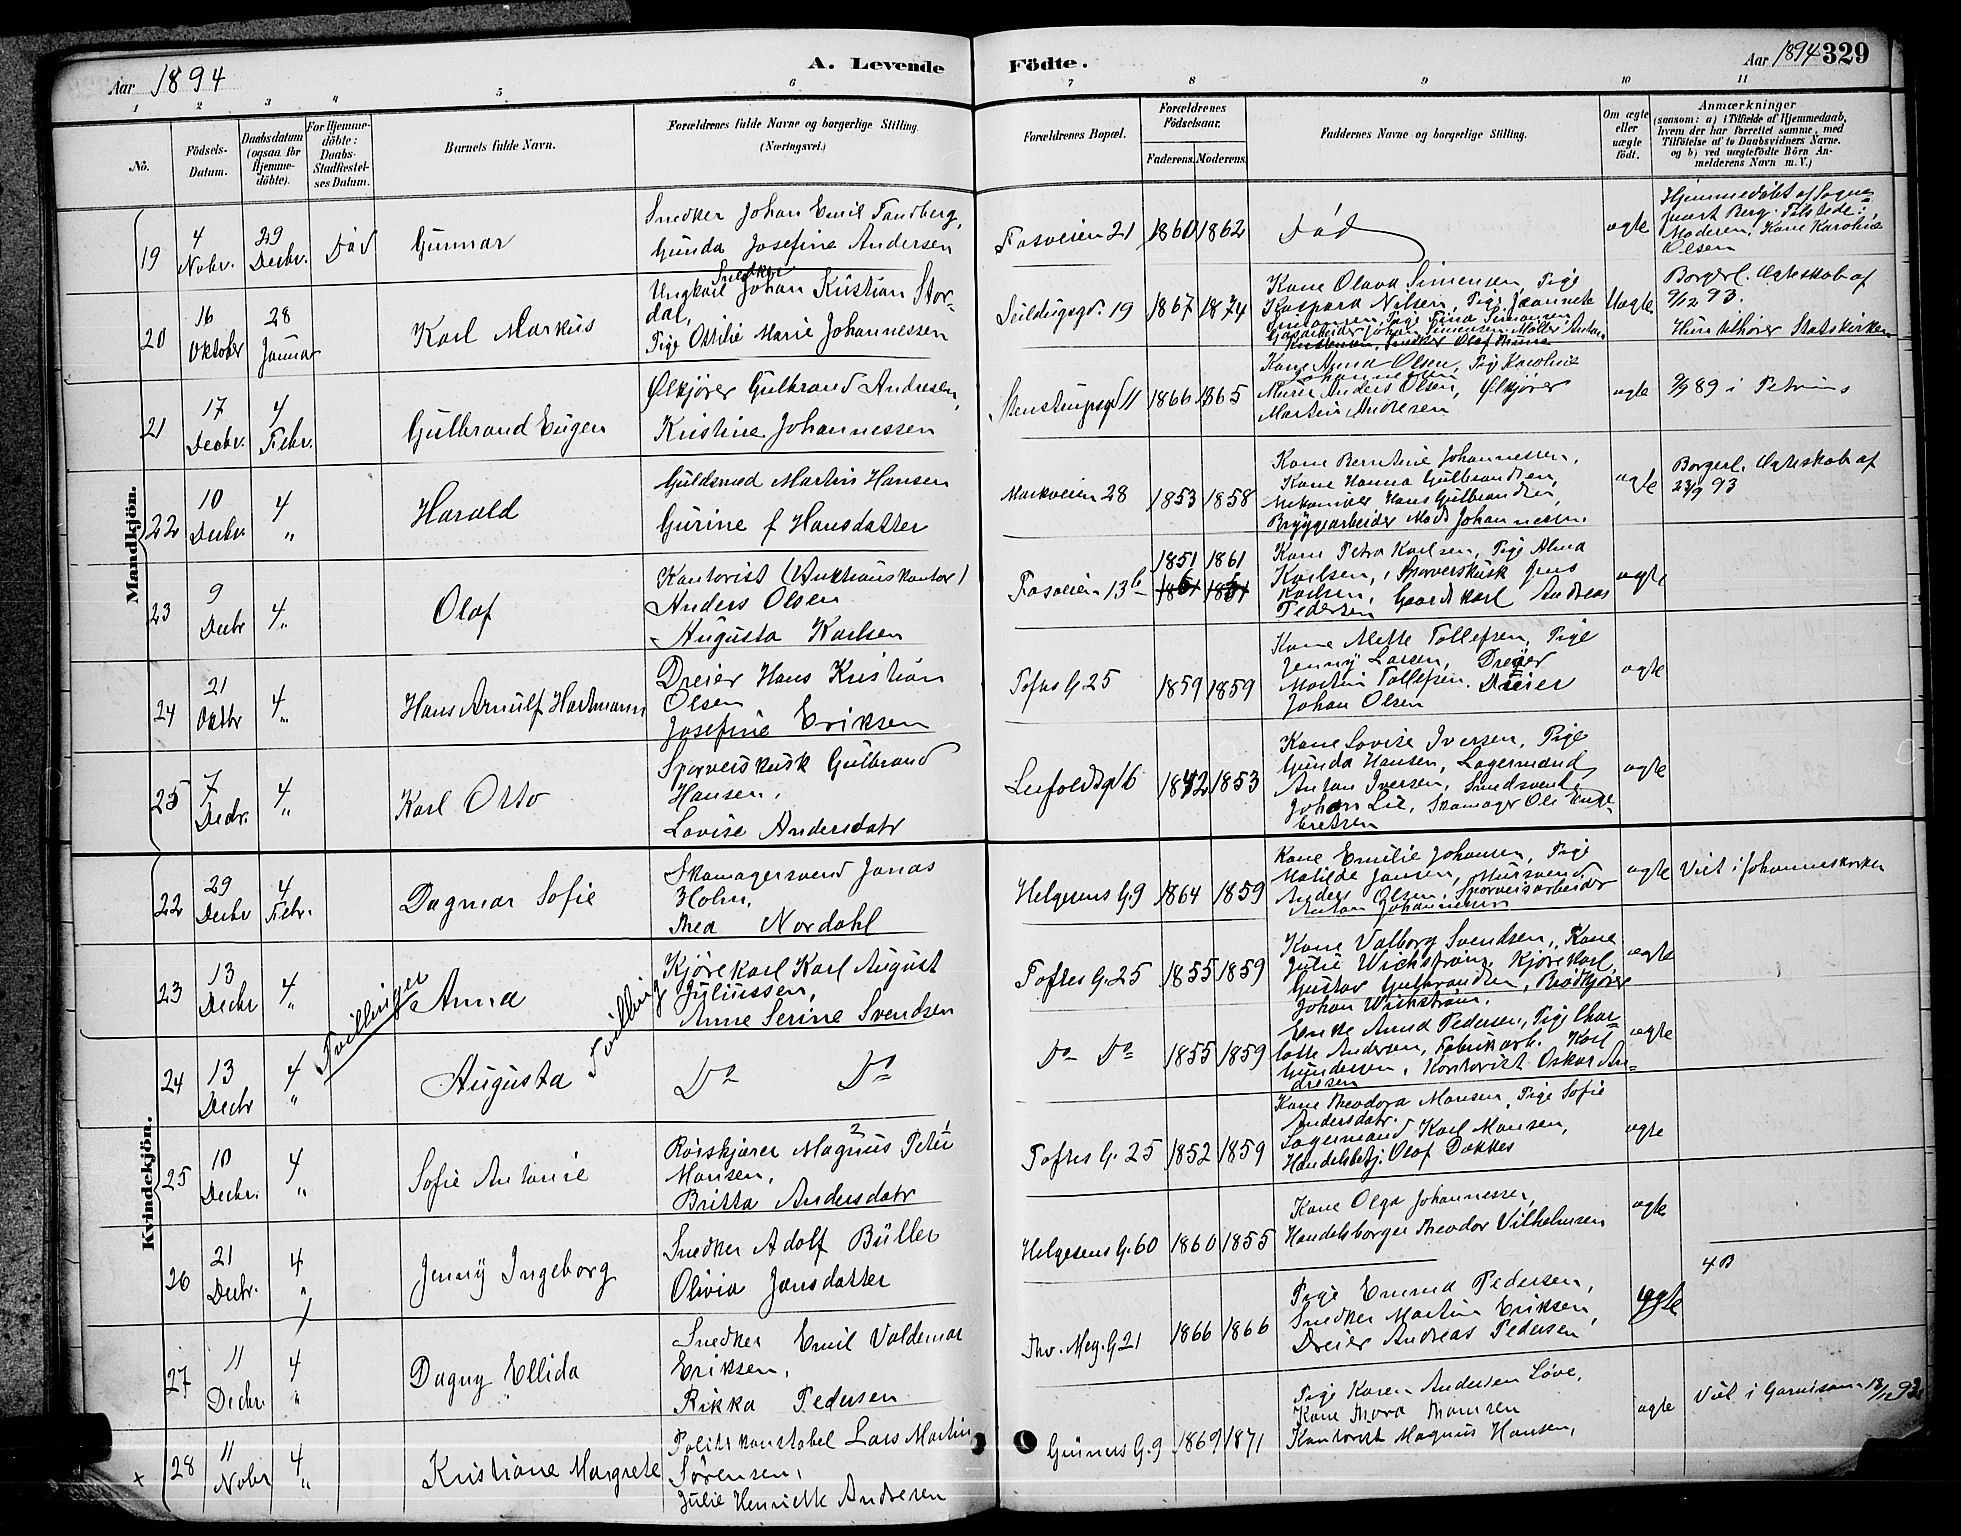 Aar 1894
A. Levende Födte.
Aar 1894 329
1 2 3 4 5 6 7 8 9 10 11
No.
Födsels-Datum.
Daabsdatum (ogsaa for Hjemme-döbte).
For Hjemme-döbte: Daabs-Stadfæstel-ses Datum.
Barnets fulde Navn.
Forældrenes fulde Navne og borgerlige Stilling.
(Næringsvei.)
Forældrenes Bopæl.
Forældrenes Födselsaar.
Faderens. Moderens.
Faddernes Navne og borgerlige Stilling.
Om ægte eller uægte födt.
Anmærkninger
(saasom: a) i Tilfælde af Hjemmedaab,
hvem der har forrettet samme, med
Tilföielse af to Daabsvidners Navne.
og b) ved uægtefödte Börn An-
melderens Navn m. V.)
Mandkjön.
19 4 Novbr. 29 Decbr. Död Gunnar
Snedker Johan Emil Tandberg,
Gunda Josefine Andersen
Fosveien 21 1860 1862 Död ægte
Hjemmedöbt af Sogne-
prest Berg. Tilstede:
Moderen, Kone Karoline
Olsen
20 16 Oktober 28 Januar Karl Markus
Snedker
Ungkarl Johan Kristian Stor-
dal,
Pige Ottilie Marie Johannessen
Seildugsgd. 19 1867 1874
Kone Olava Simensen, Pige
Kaspara Nilsen, Pige Jeannette
Uægte
Borgerl. Ægteskab af
9/12 93.
Hun tilhører Statskirken
21 17 Decbr. 4 Febr. Gulbrand Eugen
Ølkjører Gulbrand Andresen,
Kristine Johannessen
Stenstrupsgd 11 1866 1865
Kone Anna Olsen, Pige Karoline
Johannessen
Murer Anders Olsen, Ølkjører
Martin Andresen
ægte
9/9 89 i Petrus
22 10 Decbr. 4 " Harald
Guldsmed Martin Hansen
Gurine f. Hansdatter
Markveien 28 1853 1858
Kone Berntine Johannessen,
Kone Hanna Gulbrandsen,
Mekaniker Hans Gulbrandsen,
Bryggearbeider Mads Johannessen.
ægte
Borgerl. Ægteskab af
23/9 93
23 9 Decbr 4 " Olaf
Kontorist (Auktionskontor)
Anders Olsen
Augusta Karlsen
Fosveien 13b 1851 1861
Kone Petra Karlsen, Pige Alma
Karlsen, Sporveiskusk Jens
Karlsen, Gaardskarl Andreas
Pedersen
ægte
24 21 Oktbr 4 " Hans Arnulf Hartmann
Dreier Hans Kristian
Olsen
Josefine Eriksen
Toftes G. 25 1859 1859
Kone Mette Tollefsen, Pige
Jenny Larsen, Dreier
Martin Tollefsen, Dreier
Johan Olsen
ægte
25 7 Decbr. 4 " Karl Otto
Sporveiskusk Gulbrand
Hansen,
Lovise Andersdatr
Leufoldsgd 6 1842 1853
Kone Lovise Iversen, Pige
Gunda Hansen, Lagermand
Anton Iversen, Smedsvend
Johan Lie, Skomager Ole Enge-
bretsen
ægte
Kvindekjön.
22 29 Decbr 4 Febr. Dagmar Sofie
Skomagersvend Jonas
Holm,
Thea Nordahl
Helgesens G. 9 1864 1859
Kone Emilie Johansen, Pige
Matilde Jansen, Mursvend
Anders Olsen, Sporveisarbeider
Anton Johannessen
ægte
Viet i Johanneskirken
23 13 Decbr 4 " Tvillinger Anna Tvilling
Kjørekarl Karl August
Juliussen,
Anne Serine Svendsen
Toftes G. 25 1855 1859
Kone Valborg Svendsen, Kone
Julie Wickstrøm, Kjørekarl
Gustav Gulbrandsen, Brødkjører
Johan Wickstrøm.
ægte
24 13 Decbr 4 " Augusta
Do Do
Do Do 1855 1859
Enke Anna Pedersen, Pige Char-
lotte Andersen, Fabrikarb. Karl
Gundersen, Kontorist Oskar An-
dresen
ægte
25 10 Decbr. 4 " Sofie Antonie
Roiskjører Magnus Peter
Monsen,
Britta Andersdatr
Toftes G. 25 1852 1859
Kone Theodora Monsen, Pige Sofie
Andersdatr.
Lagermand Karl Monsen,
Handelsbetj. Olaf Dokkes
ægte
26 21 Decbr. 4 " Jenny Ingeborg
Snedker Adolf Büller
Olivia Jonsdatter
Helgesens G. 60 1860 1855
Kone Olga Johannessen,
Handelsborger Theodor Vilhelmsen
ægte
27 11 Decbr. 4 " Dagny Ellida
Snedker Emil Valdemar
Eriksen,
Rikka Pedersen
Thv. Mey. G 21 1866 1866
Pige Emma Pedersen,
Snedker Martin Eriksen,
Dreier Andreas Pedersen
ægte
4 B
+ 28 11 Novbr 4 " Kristiane Margrete
Politikonstabel Lars Martin
Sørensen,
Julie Henriette Andresen
Grüners G. 9 1869 1871
Pige Karen Andersen Løve,
Kone Thora Thomsen
Kontorist Magnus Hansen,
ægte
Viet i Garnison 18/12 92